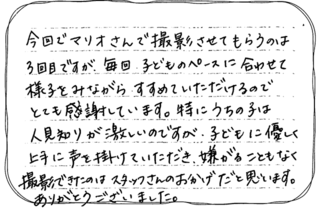 今回でマリオさんで撮影させてもらうのは
3回目ですが、毎回、子どものペースに合わせて
様子をみながら すすめていただけるので
とても感謝しています。特にうちの子は
人見知りが激しいのですが、子どもに優しく
上手に声を掛けていただき、嫌がることもなく
撮影できたのは スタッフさんのおかげだと思います。
ありがとうございました。